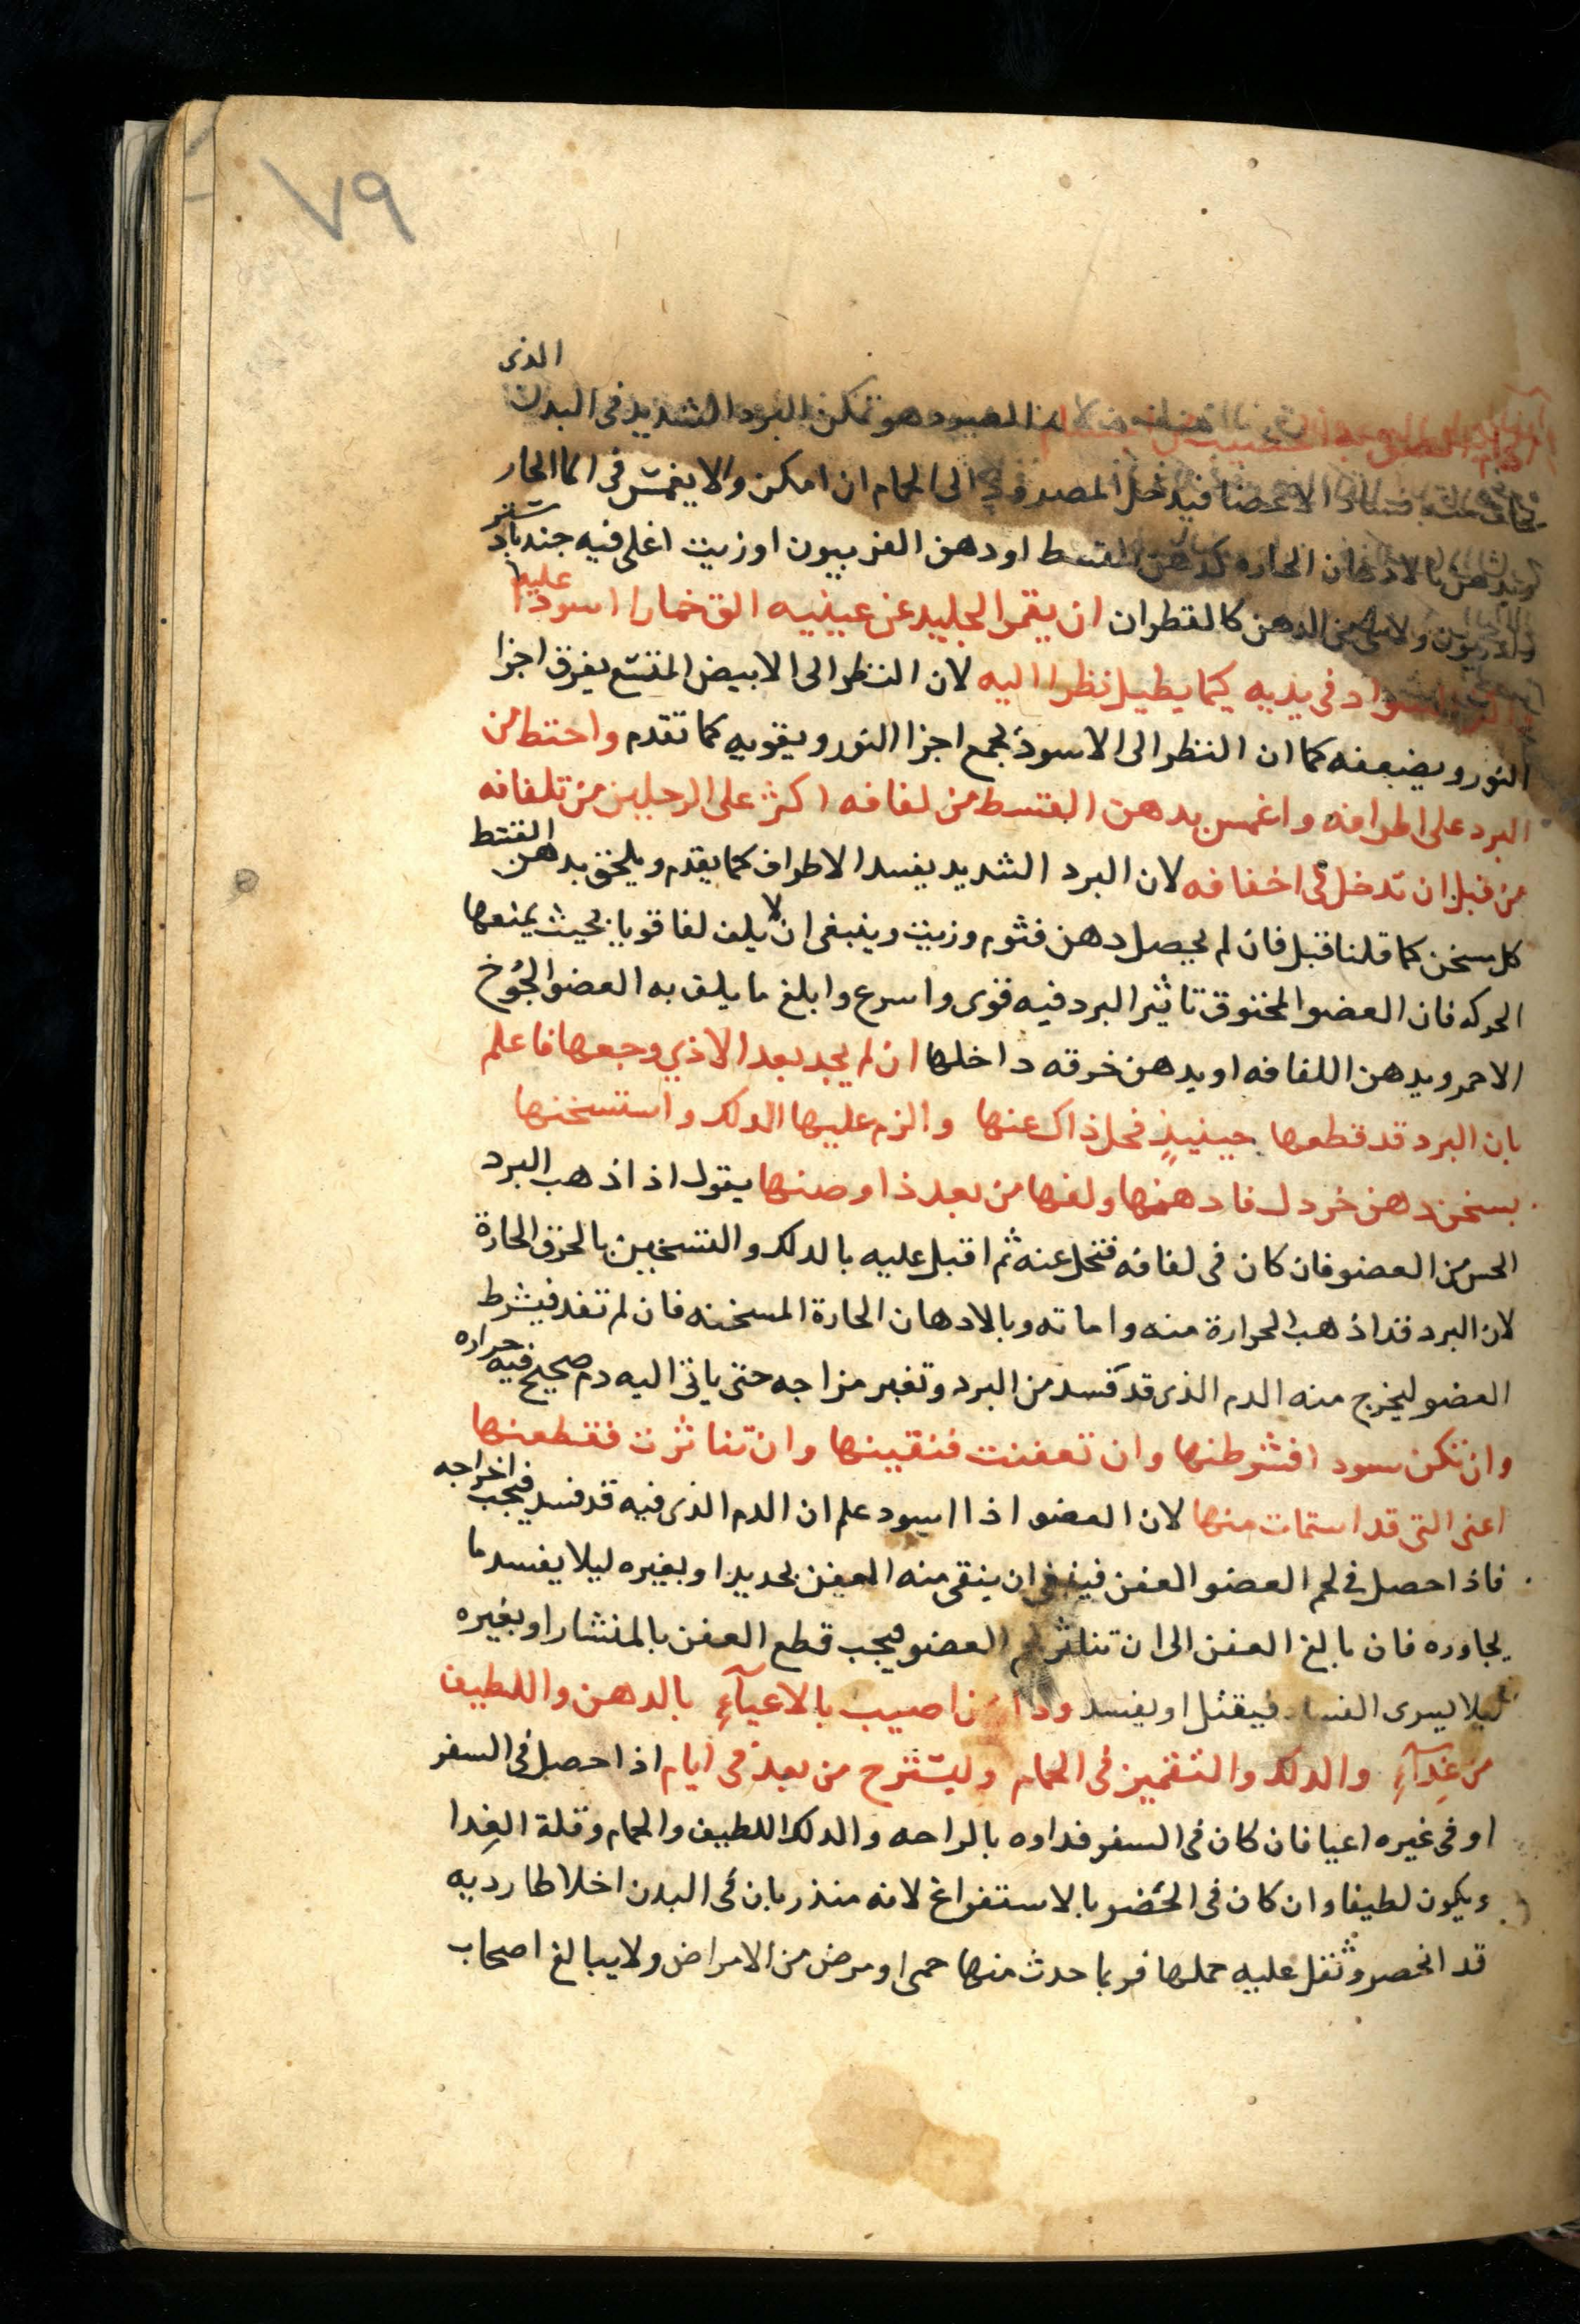 ٧٩
الذى
هو تمكن البرد الشديد فى البدن
الاعضا فيدخل المصرود الى الحمام ان امكن والا يغمس فى الما الحار
ويدهن بالادهان الحاره كدهن القسط او دهن الفربيون او زيت اغلى فيه جندبادستر
ولا الدهن كالقطران ان يقمر الجليد عن عينيه الق خمارا اسودا عليه
فى يديه كيما يطيل نظرا اليه لان النظر الى الابيض المقشع يفرق اجزا
النور ويضعفه كما ان النظر الى الاسود يجمع اجزا النور ويقويه كما تقدم واحتط من
البرد على اطرافه واغمس بدهن القسط من لفافه اكثر على الرجلين من تلفافه
من قبل ان تدخل فى اخفافه لان البرد الشديد يفسد الاطراف كما يقدم ويلحق بدهن القسط
كل مسخن كما قلنا قبل فان لم يحصل دهن فثوم وزيت وينبغى ان لا يلف لفا قويا بحيث يمنعها
الحركه فان العضو المخنوق تاثير البرد فيه قوى واسرع وابلغ ما يلف به العضو الجُوخ
الاحمر ويدهن اللفافه او يدهن خرقه داخلها ان لم يجد بعد الاذي وجعها فاعلم
بان البرد قد قطعها حينيذٍ فحل ذاك عنها والزم عليها الدلك واستسخنها
بسخن دهن خردل فادهنها ولفها من بعد ذا وصنها يقول اذا ذهب البرد
الحس من العضو فان كان فى لفافه فتحل عنه ثم اقبل عليه بالدلك والتسخين بالخرق الحارة
لان البرد قد اذهب الحرارة منه واماته وبالادهان الحارة المسخنه فان لم تفد فيشرط
العضو ليخرج منه الدم الذى قد فسد من البرد وتغير مزاجه حتى ياتى اليه دم صحيح فيه حراره
وان تكن سودا فشرطنها وان تعفنت فنقينها وان تناثرت فقطعنها
اعنى التى قد استمات منها لان العضو اذا اسود علم ان الدم الذى فيه قد فسد فيجب اخراجه
فاذا حصل فى لحم العضو العفن فينبغى ان ينقى منه العفن بحديد او بغيره ليلا يفسد ما
يجاوره فان بالغ العفن الى ان تناثر لحم العضو فيجب قطع العفن بالمنشار او بغيره
ليلا يسرى الفساد فيقتل او يفسد ودا من اصيب بالاعيآءِ بالدهن واللطيف
من غِدآءِ والدلك والتغميز فى الحمام وليسترح من بعد فى ايام اذا حصل فى السفر
او فى غيره اعيا فان كان فى السفر فداوه بالراحه والدلك اللطيف والحمام وقلة الغِدا
ويكون لطيفا وان كان فى الحَضر بالاستفراغ لانه منذر بان فى البدن اخلاطا رديه
قد انحصر وثقل عليه حملها فربما حدث منها حمى او مرض من الامراض ولا يبالغ اصحاب